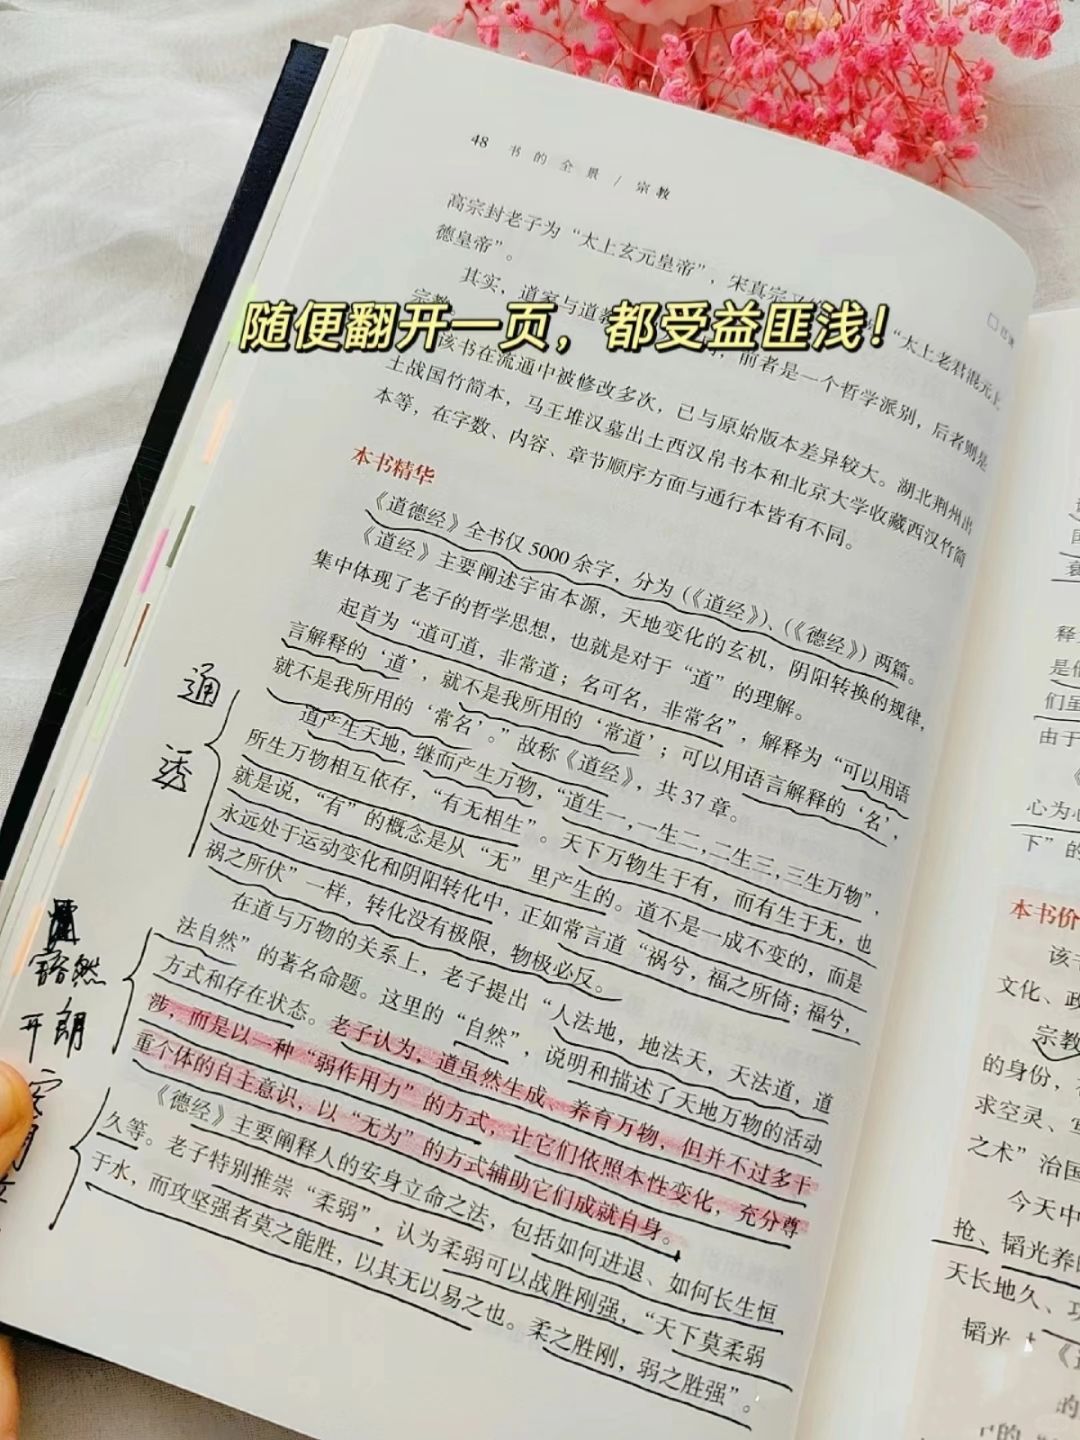 48 书的全景 / 宗教
高宗封老子为“太上玄元皇帝”，宋真宗又
“太上老君混元上
德皇帝”。
其实，道家与道教
前者是一个哲学派别，后者则是
宗教
随便翻开一页，都受益匪浅！
该书在流通中被修改多次，已与原始版本差异较大。湖北荆州出
土战国竹简本，马王堆汉墓出土西汉帛书本和北京大学收藏西汉竹简
本等，在字数、内容、章节顺序方面与通行本皆有不同。
本书精华
《道德经》全书仅5000余字，分为（《道经》）、（《德经》）两篇。
《道经》主要阐述宇宙本源，天地变化的玄机，阴阳转换的规律，
集中体现了老子的哲学思想，也就是对于“道”的理解。
起首为“道可道，非常道；名可名，非常名”，解释为“可以用语
言解释的‘道’，就不是我所用的‘常道’；可以用语言解释的‘名’，
就不是我所用的‘常名’。”故称《道经》，共37章。
道产生天地，继而产生万物，“道生一，一生二，二生三，三生万物”，
所生万物相互依存，“有无相生”。天下万物生于有，而有生于无，也
就是说，“有”的概念是从“无”里产生的。道不是一成不变的，而是
永远处于运动变化和阴阳转化中，正如常言道“祸兮，福之所倚；福兮，
祸之所伏”一样，转化没有极限，物极必反。
在道与万物的关系上，老子提出“人法地，地法天，天法道，道
法自然”的著名命题。这里的“自然”，说明和描述了天地万物的活动
方式和存在状态。老子认为，道虽然生成、养育万物，但并不过多干
涉，而是以一种“弱作用力”的方式，让它们依照本性变化，充分尊
重个体的自主意识，以“无为”的方式辅助它们成就自身。
《德经》主要阐释人的安身立命之法，包括如何进退、如何长生恒
久等。老子特别推崇“柔弱”，认为柔弱可以战胜刚强，“天下莫柔弱
于水，而攻坚强者莫之能胜，以其无以易之也。柔之胜刚，弱之胜强”。
通
透
豁然
开朗
释
是
们
由于
心为
下”的
本书价
该
文化、政
宗教
的身份，
求空灵、
之术”治国
今天中
抢、韬光养
天长地久、
韬光
的